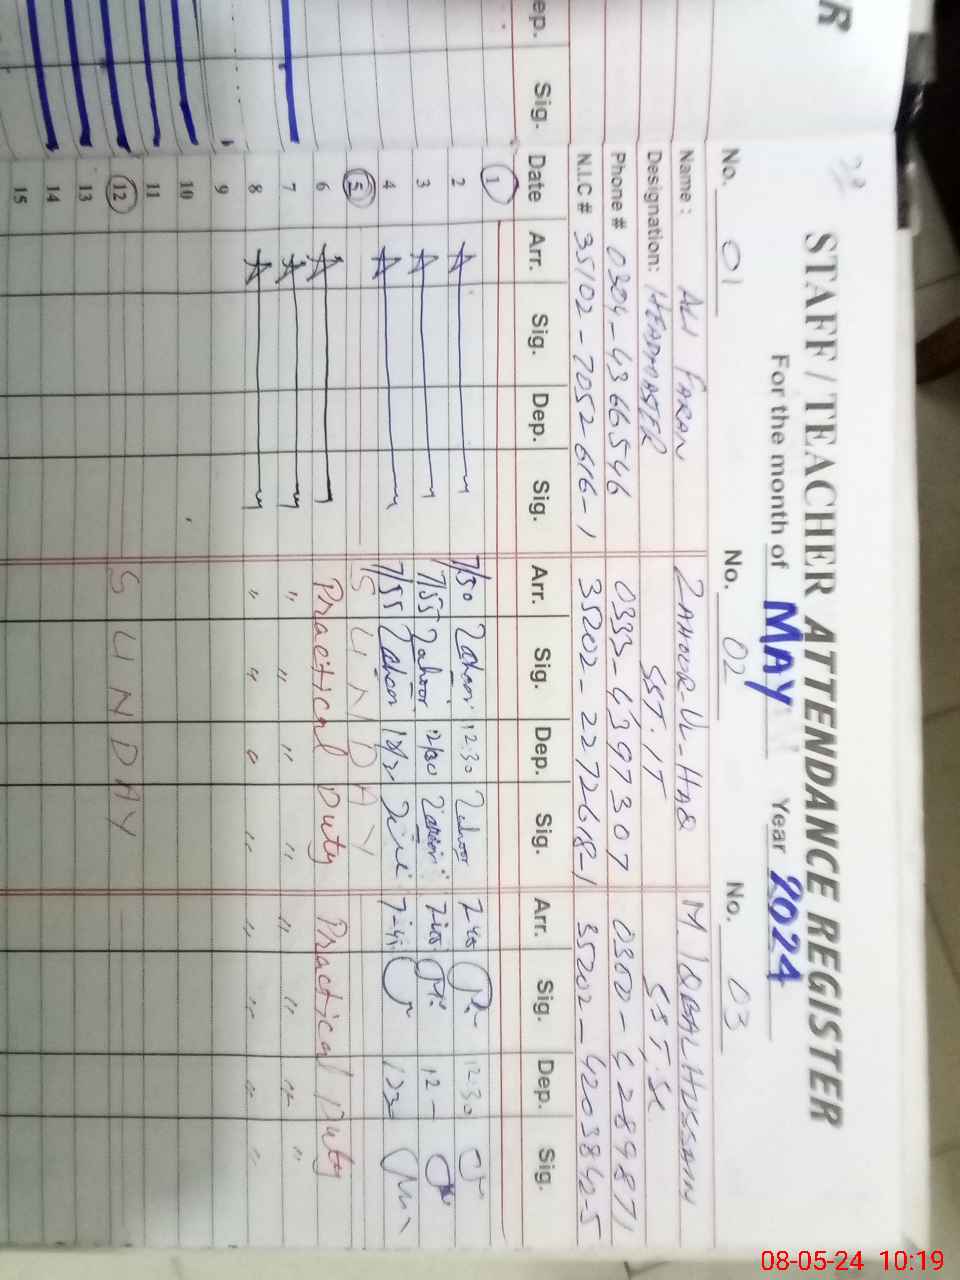 R
STAFF / TEACHER ATTENDANCE REGISTER
For the month of MAY Year 2024
No. 01 No. 02 No. 03
Name: ALI FARAN ZAHOOR-UL-HAQ M. IQBAL HUSSAIN
Designation: HEADMASTER SST. IT SST. Sc
Phone # 0304-4366546 0333-4397307 0300-4289871
N.I.C # 35102-7052616-1 35202-2272618-1 35202-4203842-5
ep. Sig. Date Arr. Sig. Dep. Sig. Arr. Sig. Dep. Sig. Arr. Sig. Dep. Sig.
1
2 A 7/50 Zahoor 12:30 Zahoor 12:30
3 A 7/55 Zahoor 12/30 12 -
4 A 7/55 Zahoor
5 SUNDAY
6 A Practical Duty Practical Duty
7 A " " " " " " " "
8 A " " " " " " "
9
10
11
12 SUNDAY
13
14
15
08-05-24 10:19